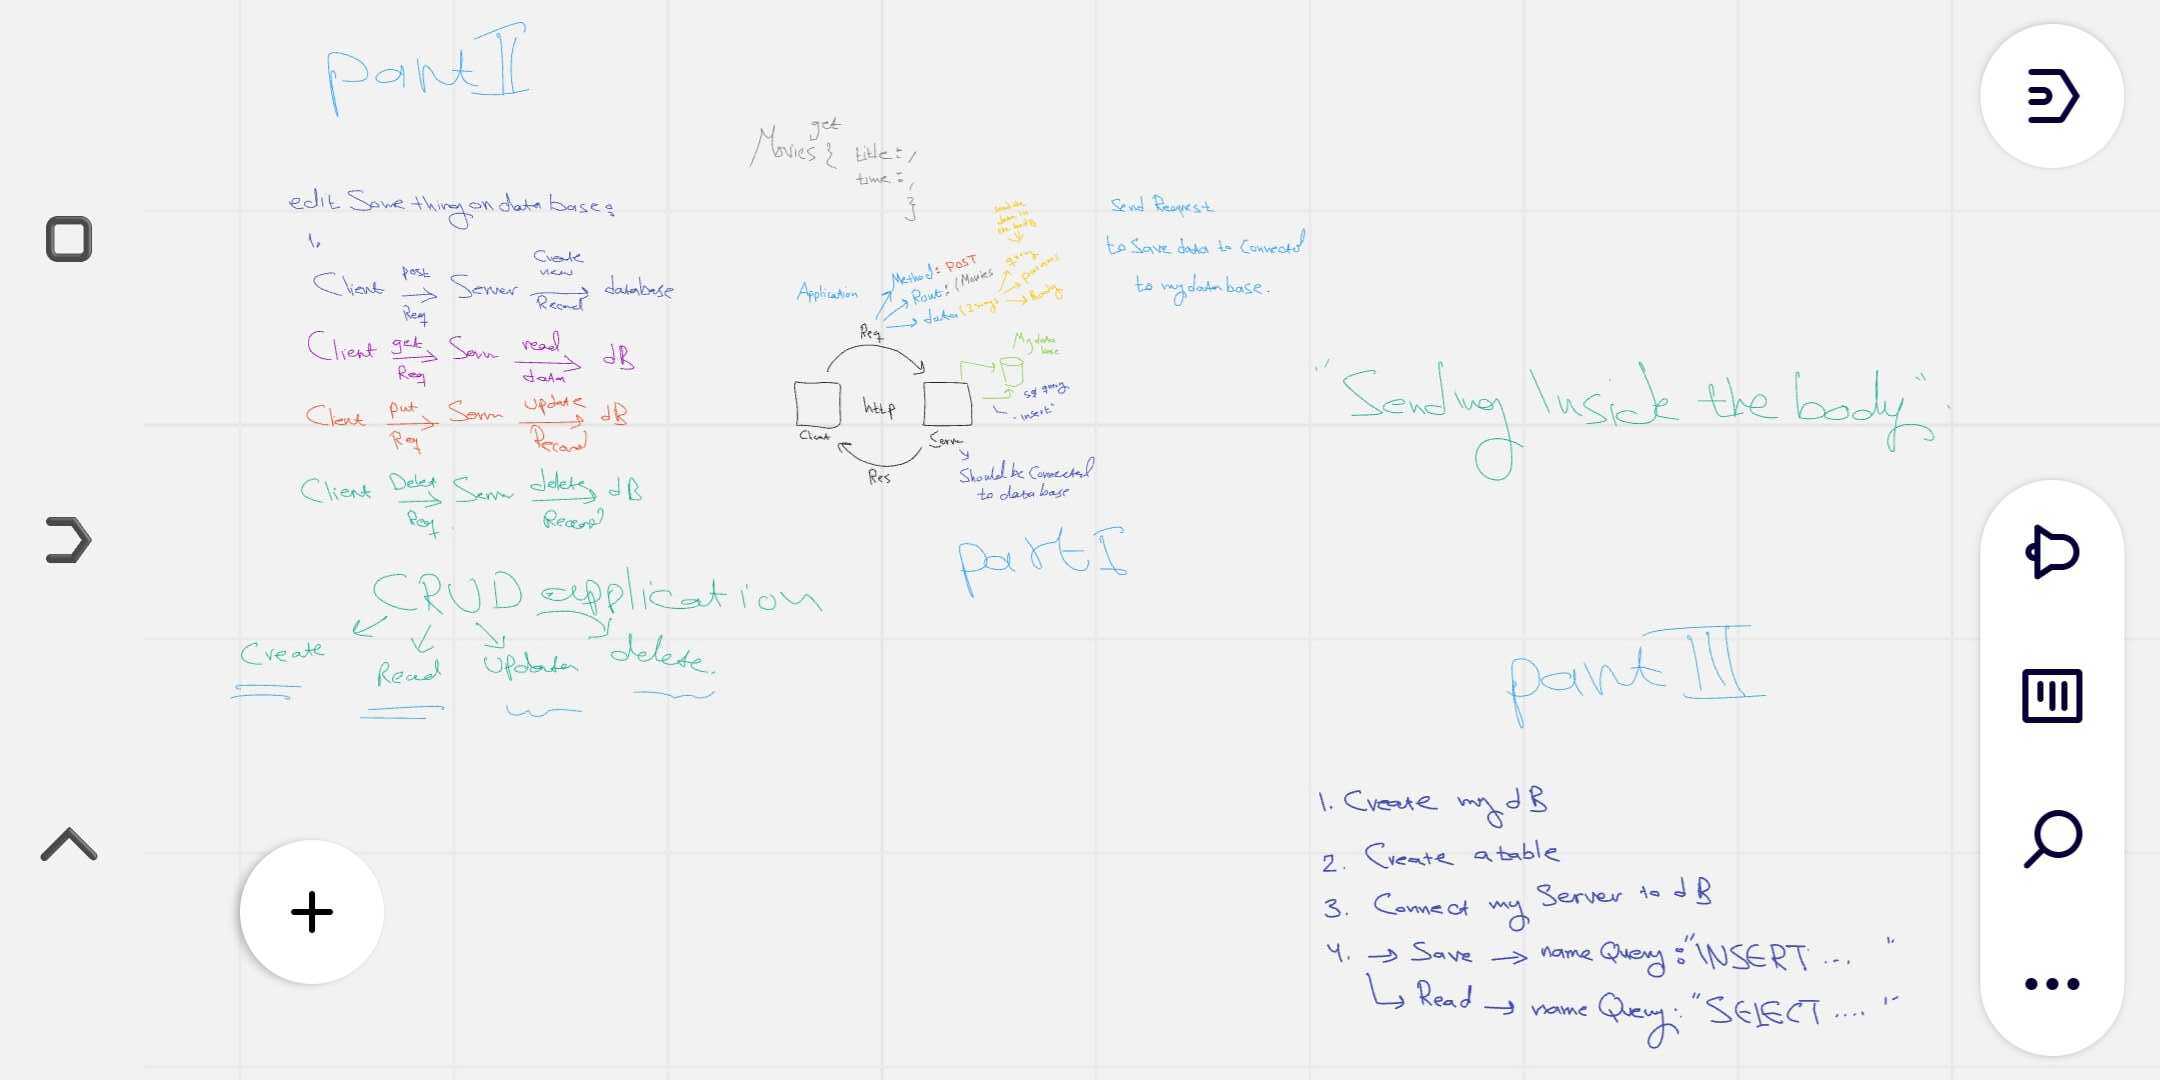 part II
get
Movies { title: ,
time: ,
}
edit Some thing on data base:
1.
Client post Req Server Create new Record database
Client get Req Serv read data dB
Client put Req Serv Update Record dB
Client Delet Req Serv delete Record dB
CRUD application
Create
Read
Update
delete.
Send Request
to Save data to Connected
to my data base.
Application
Method: POST
Rout: /Movies
data (3 ways
query
params
Body
Req
My data
base
sql query
- insert"
http
Client
Server
Res
Should be Connected
to data base
part I
"Sending Inside the body"
part III
1. Create my dB
2. Create a table
3. Connect my Server to dB
4. → Save → name Query: "INSERT ... "
↳ Read → name Query: "SELECT .... "